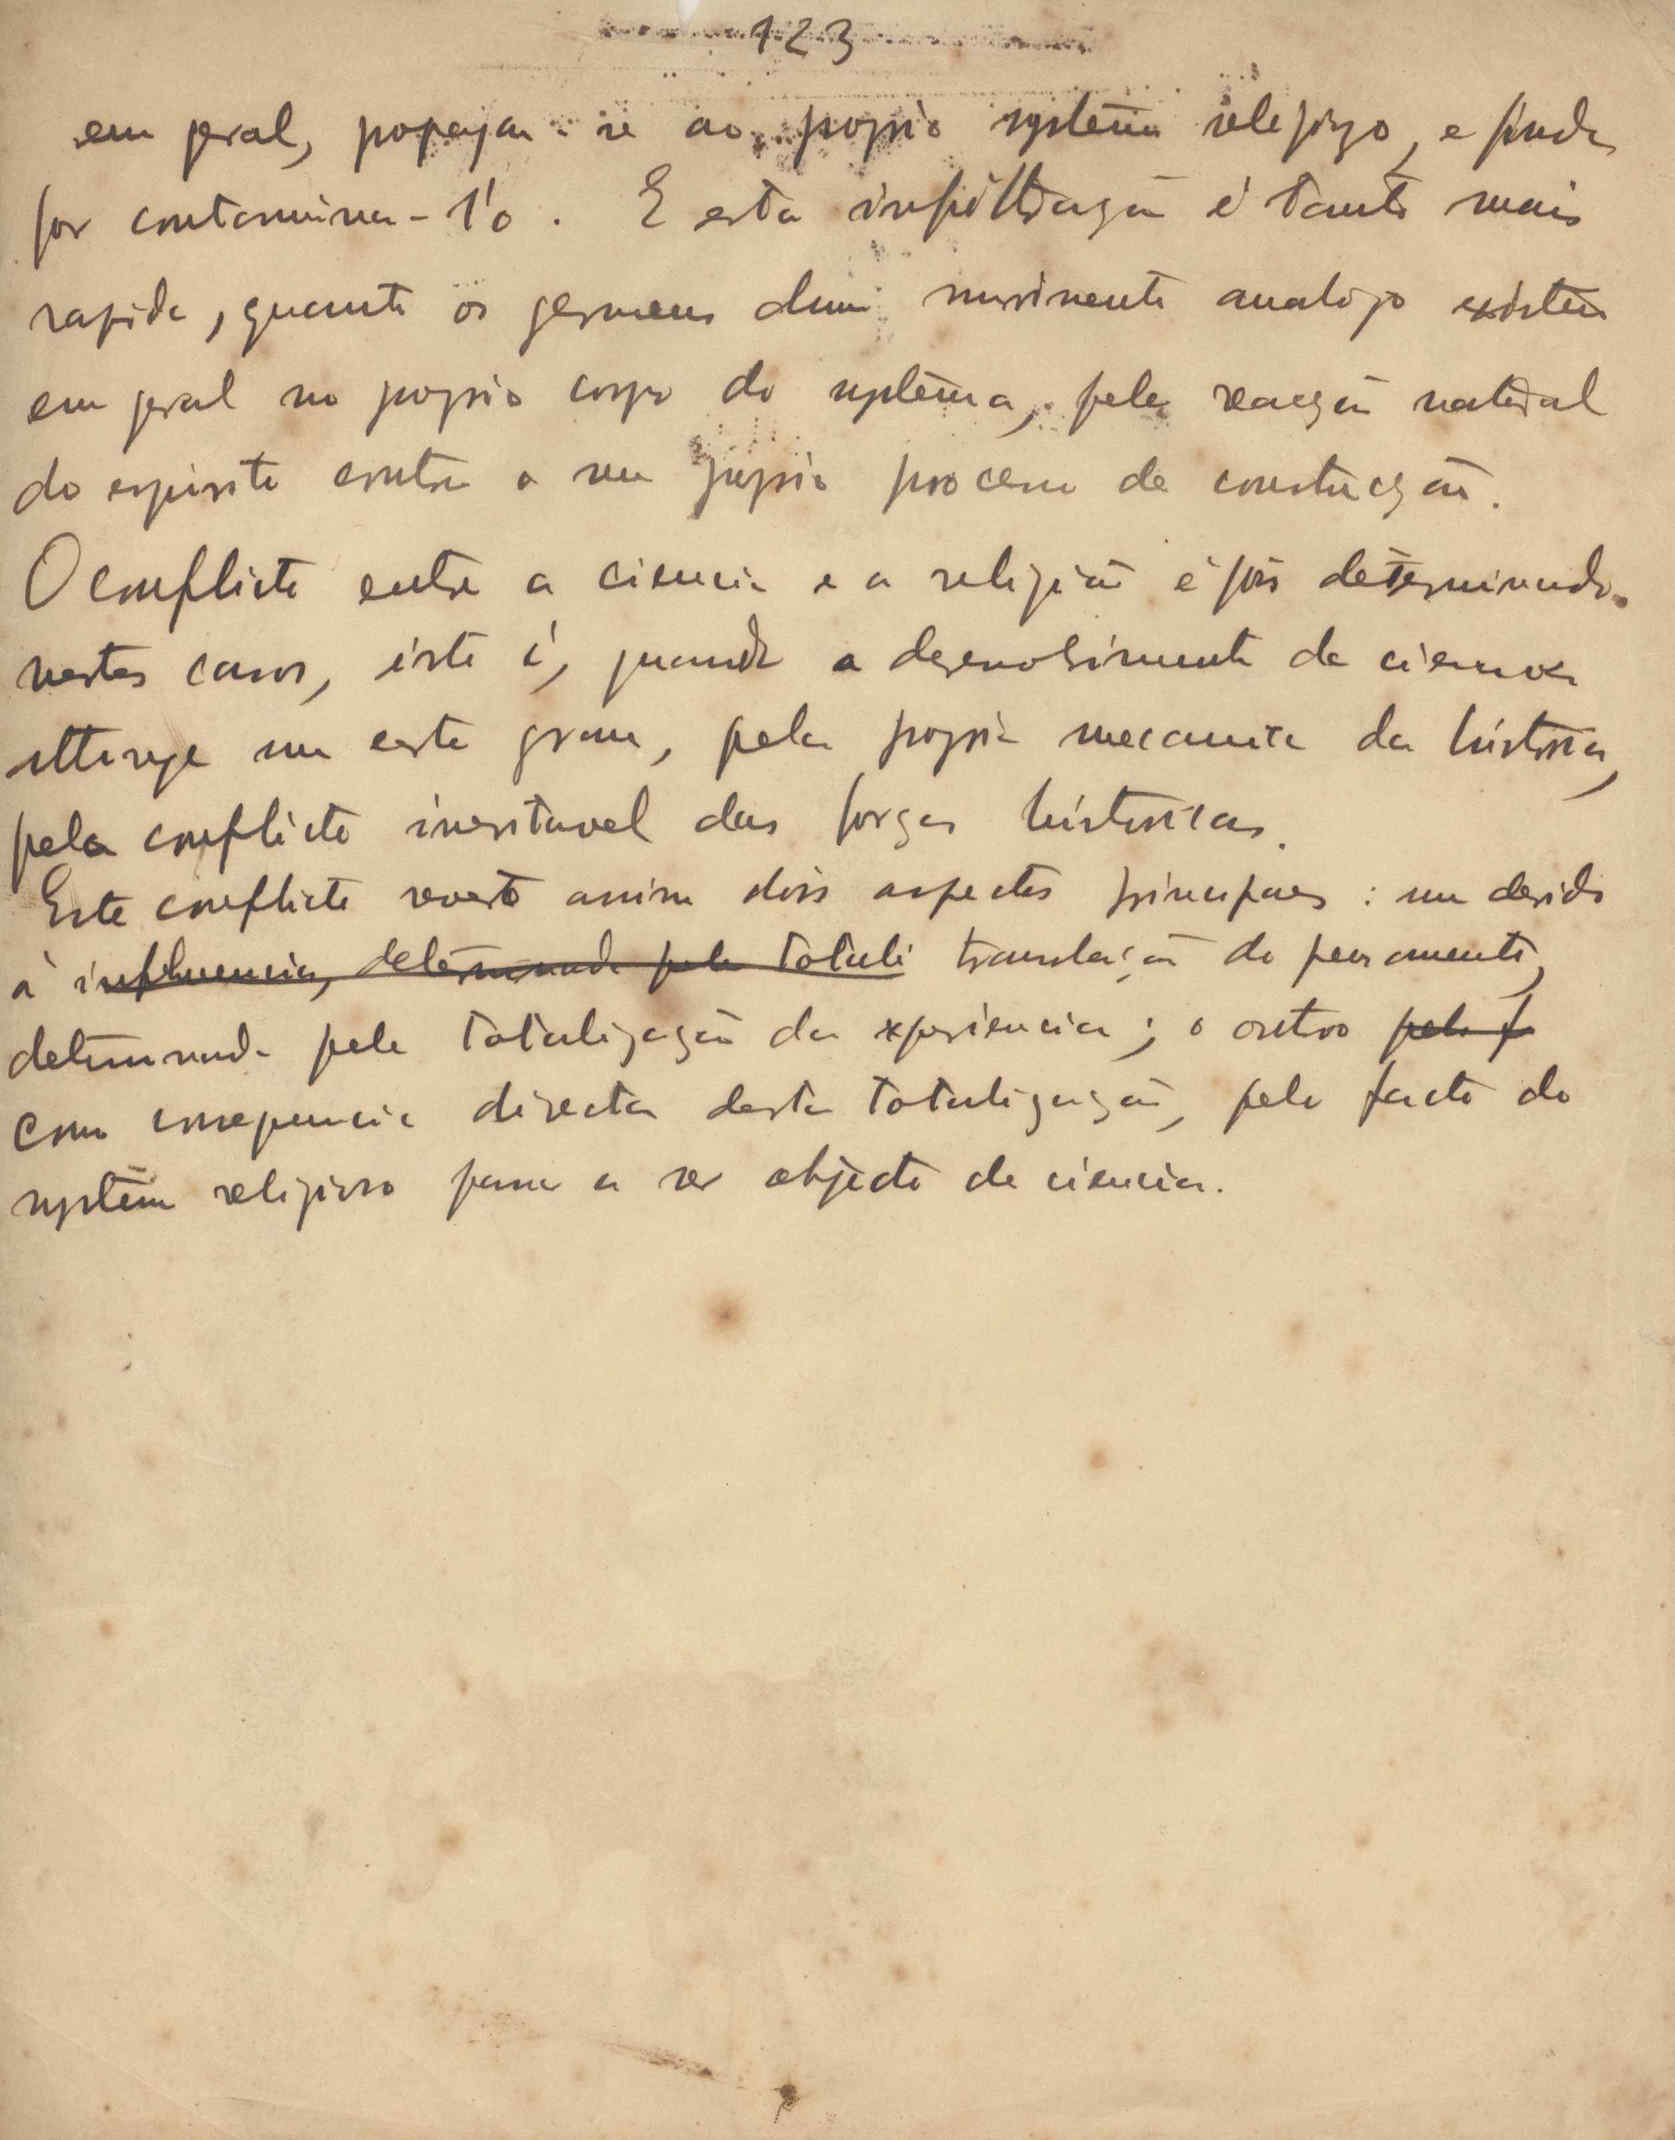 123
em geral, propaga-se ao proprio systema religioso, e finda
por contamina-l'o. E esta infiltração é tanto mais
rapida, quanto os germens dum movimento analogo existem
em geral no proprio corpo do systema, pela reacção natural
do espirito contra o seu proprio processo de construcção.
O conflicto entre a ciencia e a religião é pois determinado
nestes casos, isto é, quando o desenvolvimento da ciencia
attinge um certo grau, pela propria mecanica da historia,
pelo conflicto inevitavel das forças historicas.
Este conflicto reveste assim dois aspectos principaes: um devido
á influencia, determinada pela totali translação do pensamento,
determinada pela totalização da experiencia; o outro pelo f
como consequencia directa desta totalização, pelo facto do
systema religioso passar a ser objecto de ciencia.